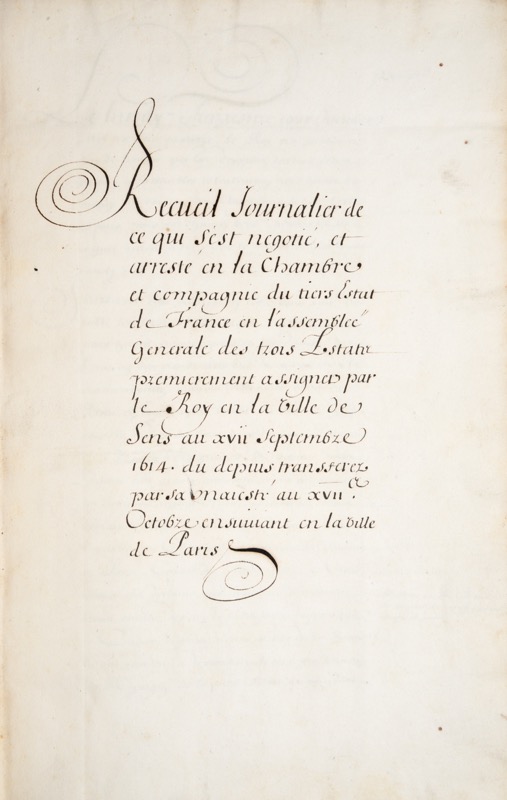 Recueil Journalier de
ce qui s'est negotié, et
arresté en la Chambre
et compagnie du tiers Estat
de France en l'assemblée
Generale des trois Estats
premierement assignez par
le Roy en la ville de
Sens au xvii Septembre
1614. du depuis transferez
par sa Maiesté au xvii.e
Octobre ensuiuant en la ville
de Paris